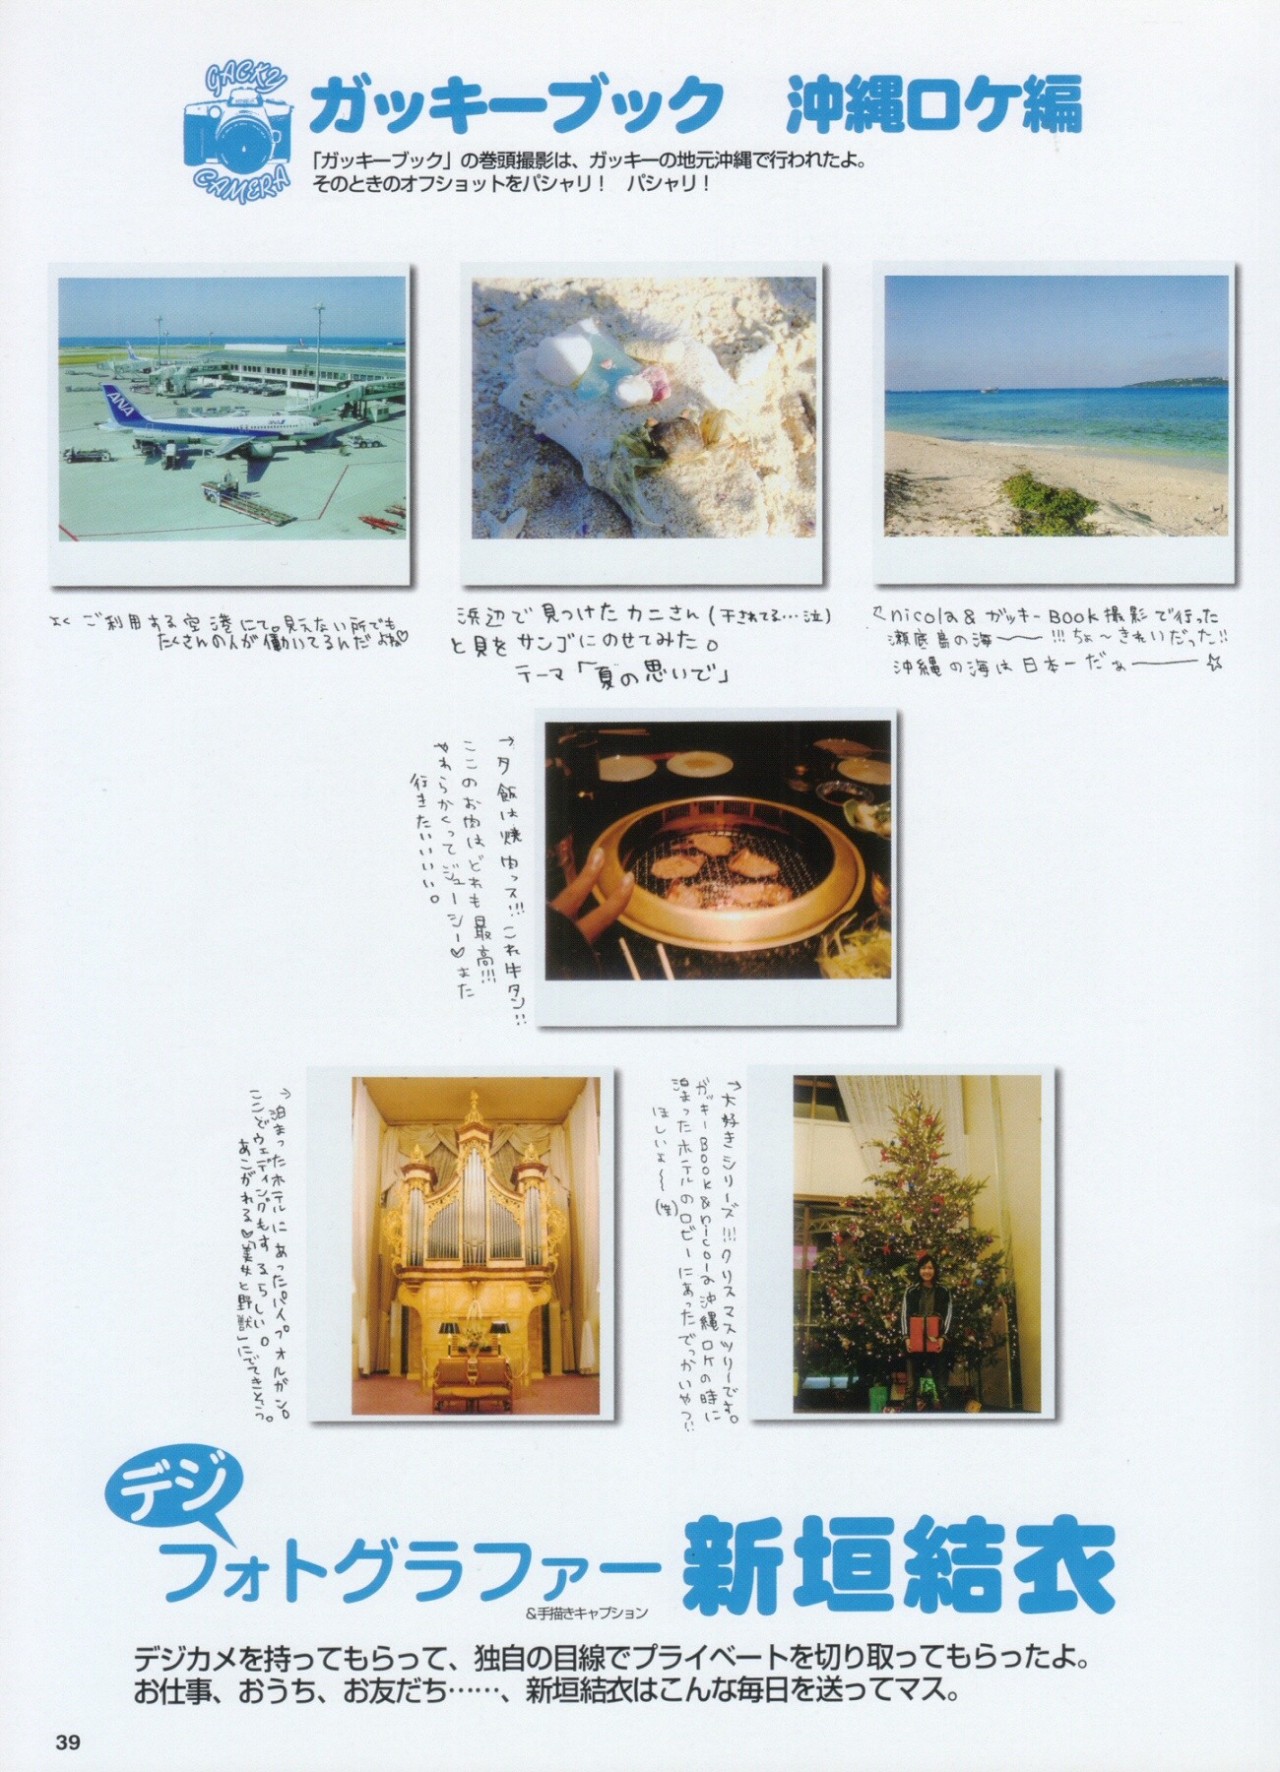 GACKY
CAMERA
ガッキーブック　沖縄ロケ編
「ガッキーブック」の巻頭撮影は、ガッキーの地元沖縄で行われたよ。
そのときのオフショットをパシャリ！　パシャリ！
ANA
ANA
よくご利用する空港にて。見えない所でも
たくさんの人が働いてるんだよね♡
浜辺で見つけたカニさん（干されてる…泣）
と貝をサンゴにのせてみた。
テーマ「夏の思いで」
nicola&ガッキーBook撮影で行った
瀬底島の海〜〜!!!ちょ〜きれいだった!!
沖縄の海は日本一だぁ―――☆
→夕飯は焼肉っス!!! これ牛タン!!
ここのお肉はどれも最高!!!
やわらかくってジューシー♡また
行きたいいいい。
→泊まったホテルにあったパイプオルガン。
ここでウェディングもするらしい。
あこがれる♡「美女と野獣」にでてきそう。
→大好きシリーズ!!!クリスマスツリーです。
ガッキーBook&nicola沖縄ロケの時に
泊まったホテルのロビーにあったでっかいやつ!!
ほしいよ〜〜
デジ
フォトグラファー 新垣結衣
＆手描きキャプション
デジカメを持ってもらって、独自の目線でプライベートを切り取ってもらったよ。
お仕事、おうち、お友だち……、新垣結衣はこんな毎日を送ってマス。
39